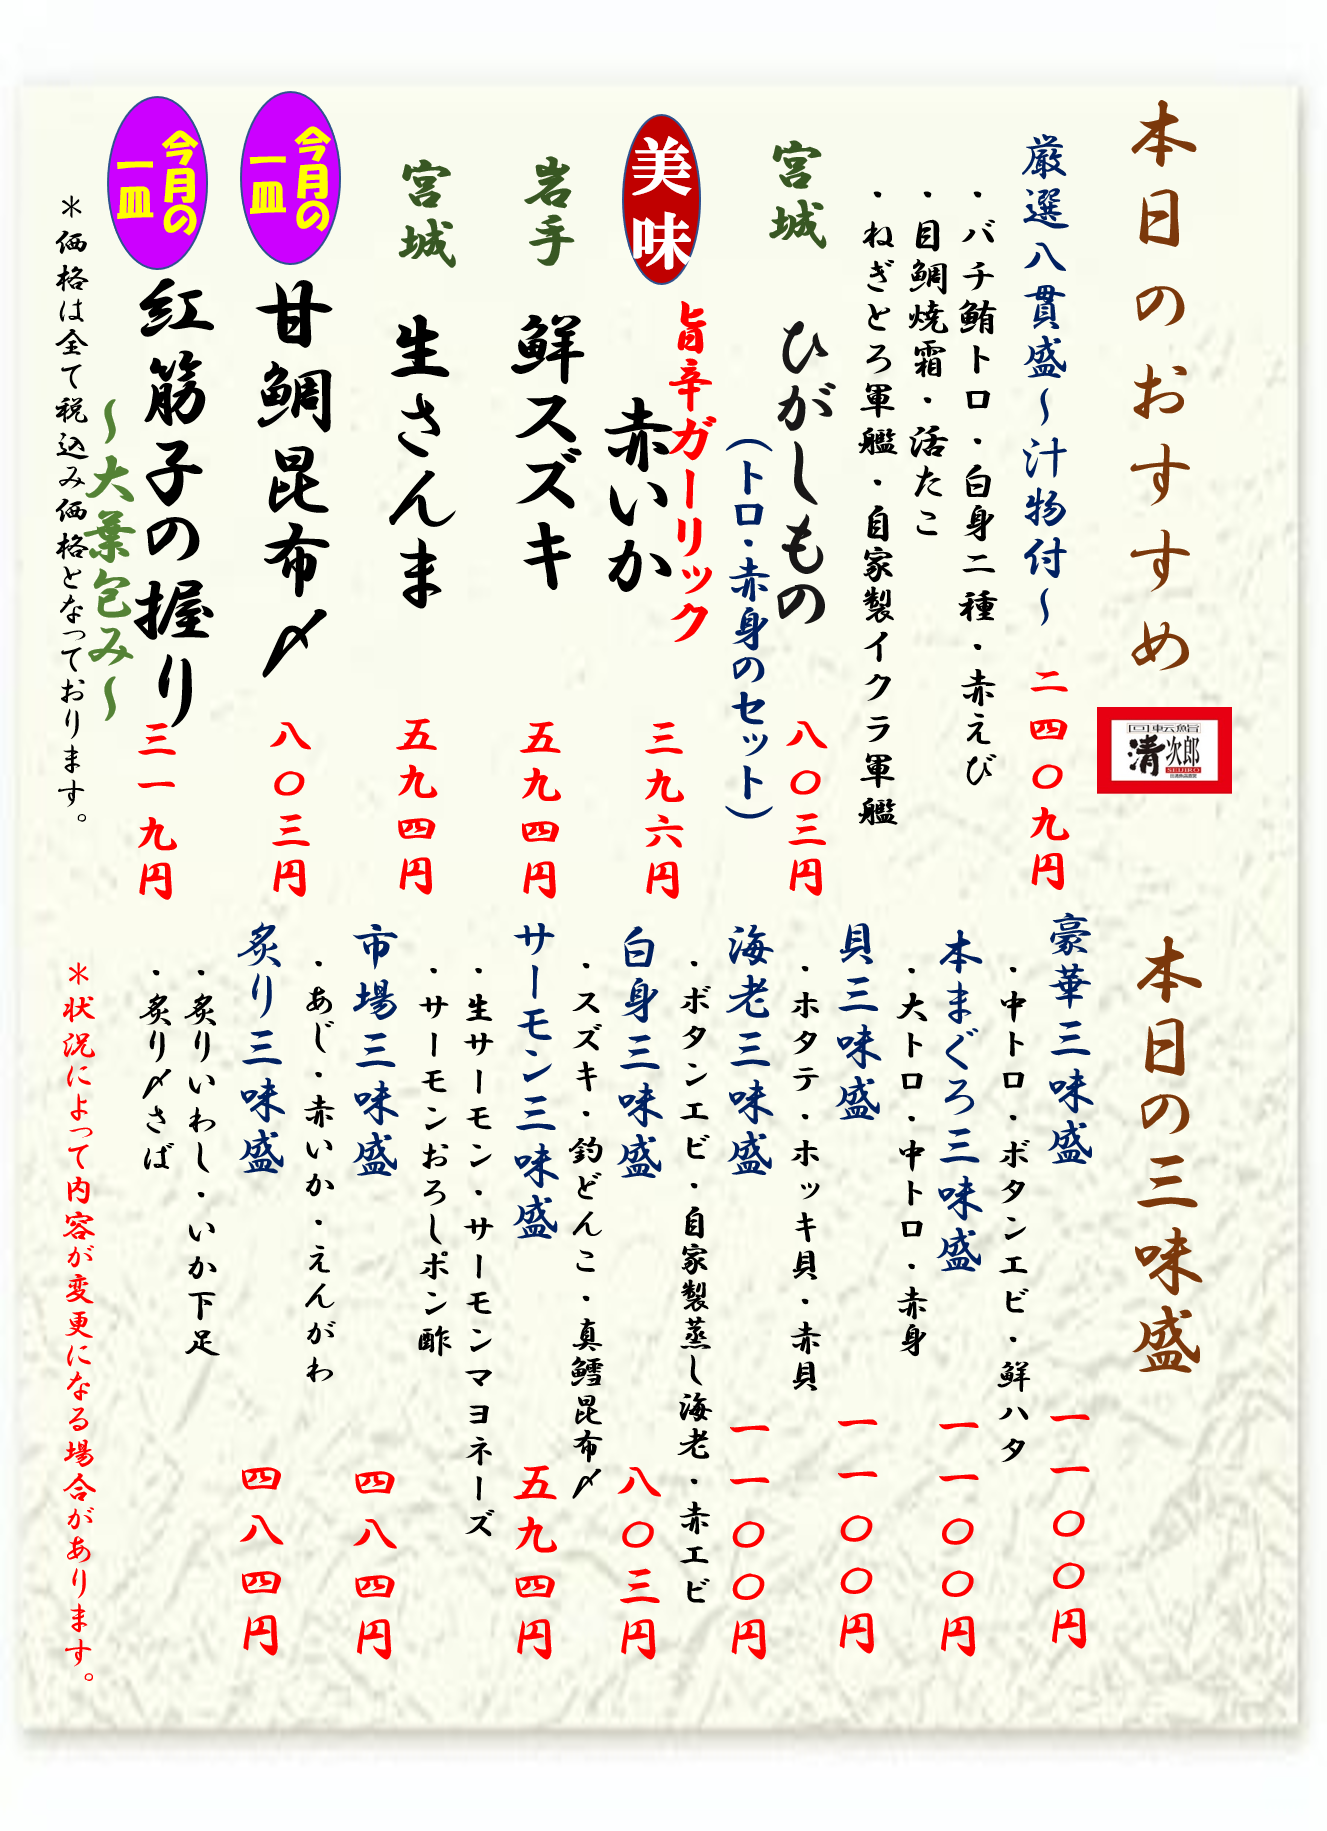 本日のおすすめ
回転鮨
清次郎
SEIJIRO
厳選八貫盛～汁物付～
二四〇九円
・バチ鮪トロ・白身二種・赤えび
・目鯛焼霜・活たこ
・ねぎとろ軍艦・自家製イクラ軍艦
宮城
ひがしもの
八〇三円
（トロ・赤身のセット）
美味
旨辛ガーリック
赤いか
三九六円
岩手
鮮スズキ
五九四円
宮城
生さんま
五九四円
今月の
一皿
甘鯛昆布〆
八〇三円
今月の
一皿
紅筋子の握り
三一九円
～大葉包み～
＊価格は全て税込み価格となっております。
本日の三味盛
豪華三味盛
一一〇〇円
・中トロ・ボタンエビ・鮮ハタ
本まぐろ三味盛
一一〇〇円
・大トロ・中トロ・赤身
貝三味盛
一一〇〇円
・ホタテ・ホッキ貝・赤貝
海老三味盛
一一〇〇円
・ボタンエビ・自家製蒸し海老・赤エビ
白身三味盛
八〇三円
・スズキ・釣どんこ・真鱈昆布〆
サーモン三味盛
五九四円
・生サーモン・サーモンマヨネーズ
・サーモンおろしポン酢
市場三味盛
四八四円
・あじ・赤いか・えんがわ
炙り三味盛
四八四円
・炙りいわし・いか下足
・炙り〆さば
＊状況によって内容が変更になる場合があります。